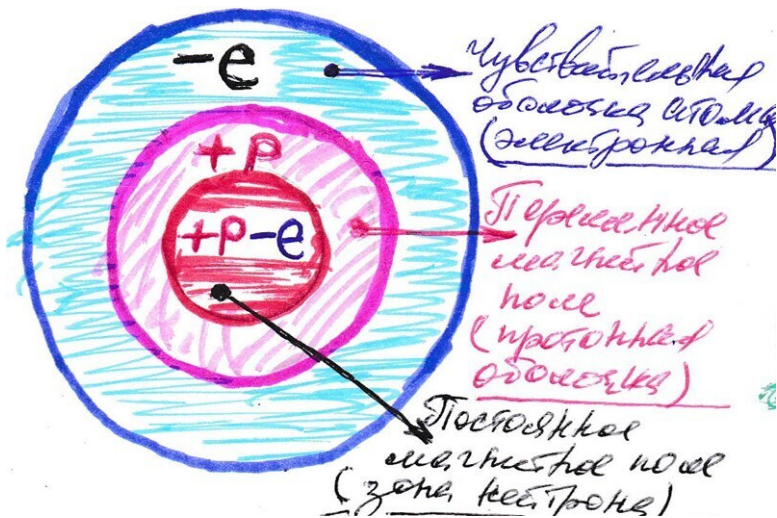 -e
Чувствительная
оболочка атома
(электронная)
+p
+p-e
Переменное
магнитное
поле
(протонная
оболочка)
Постоянное
магнитное поле
(зона нейтрона)